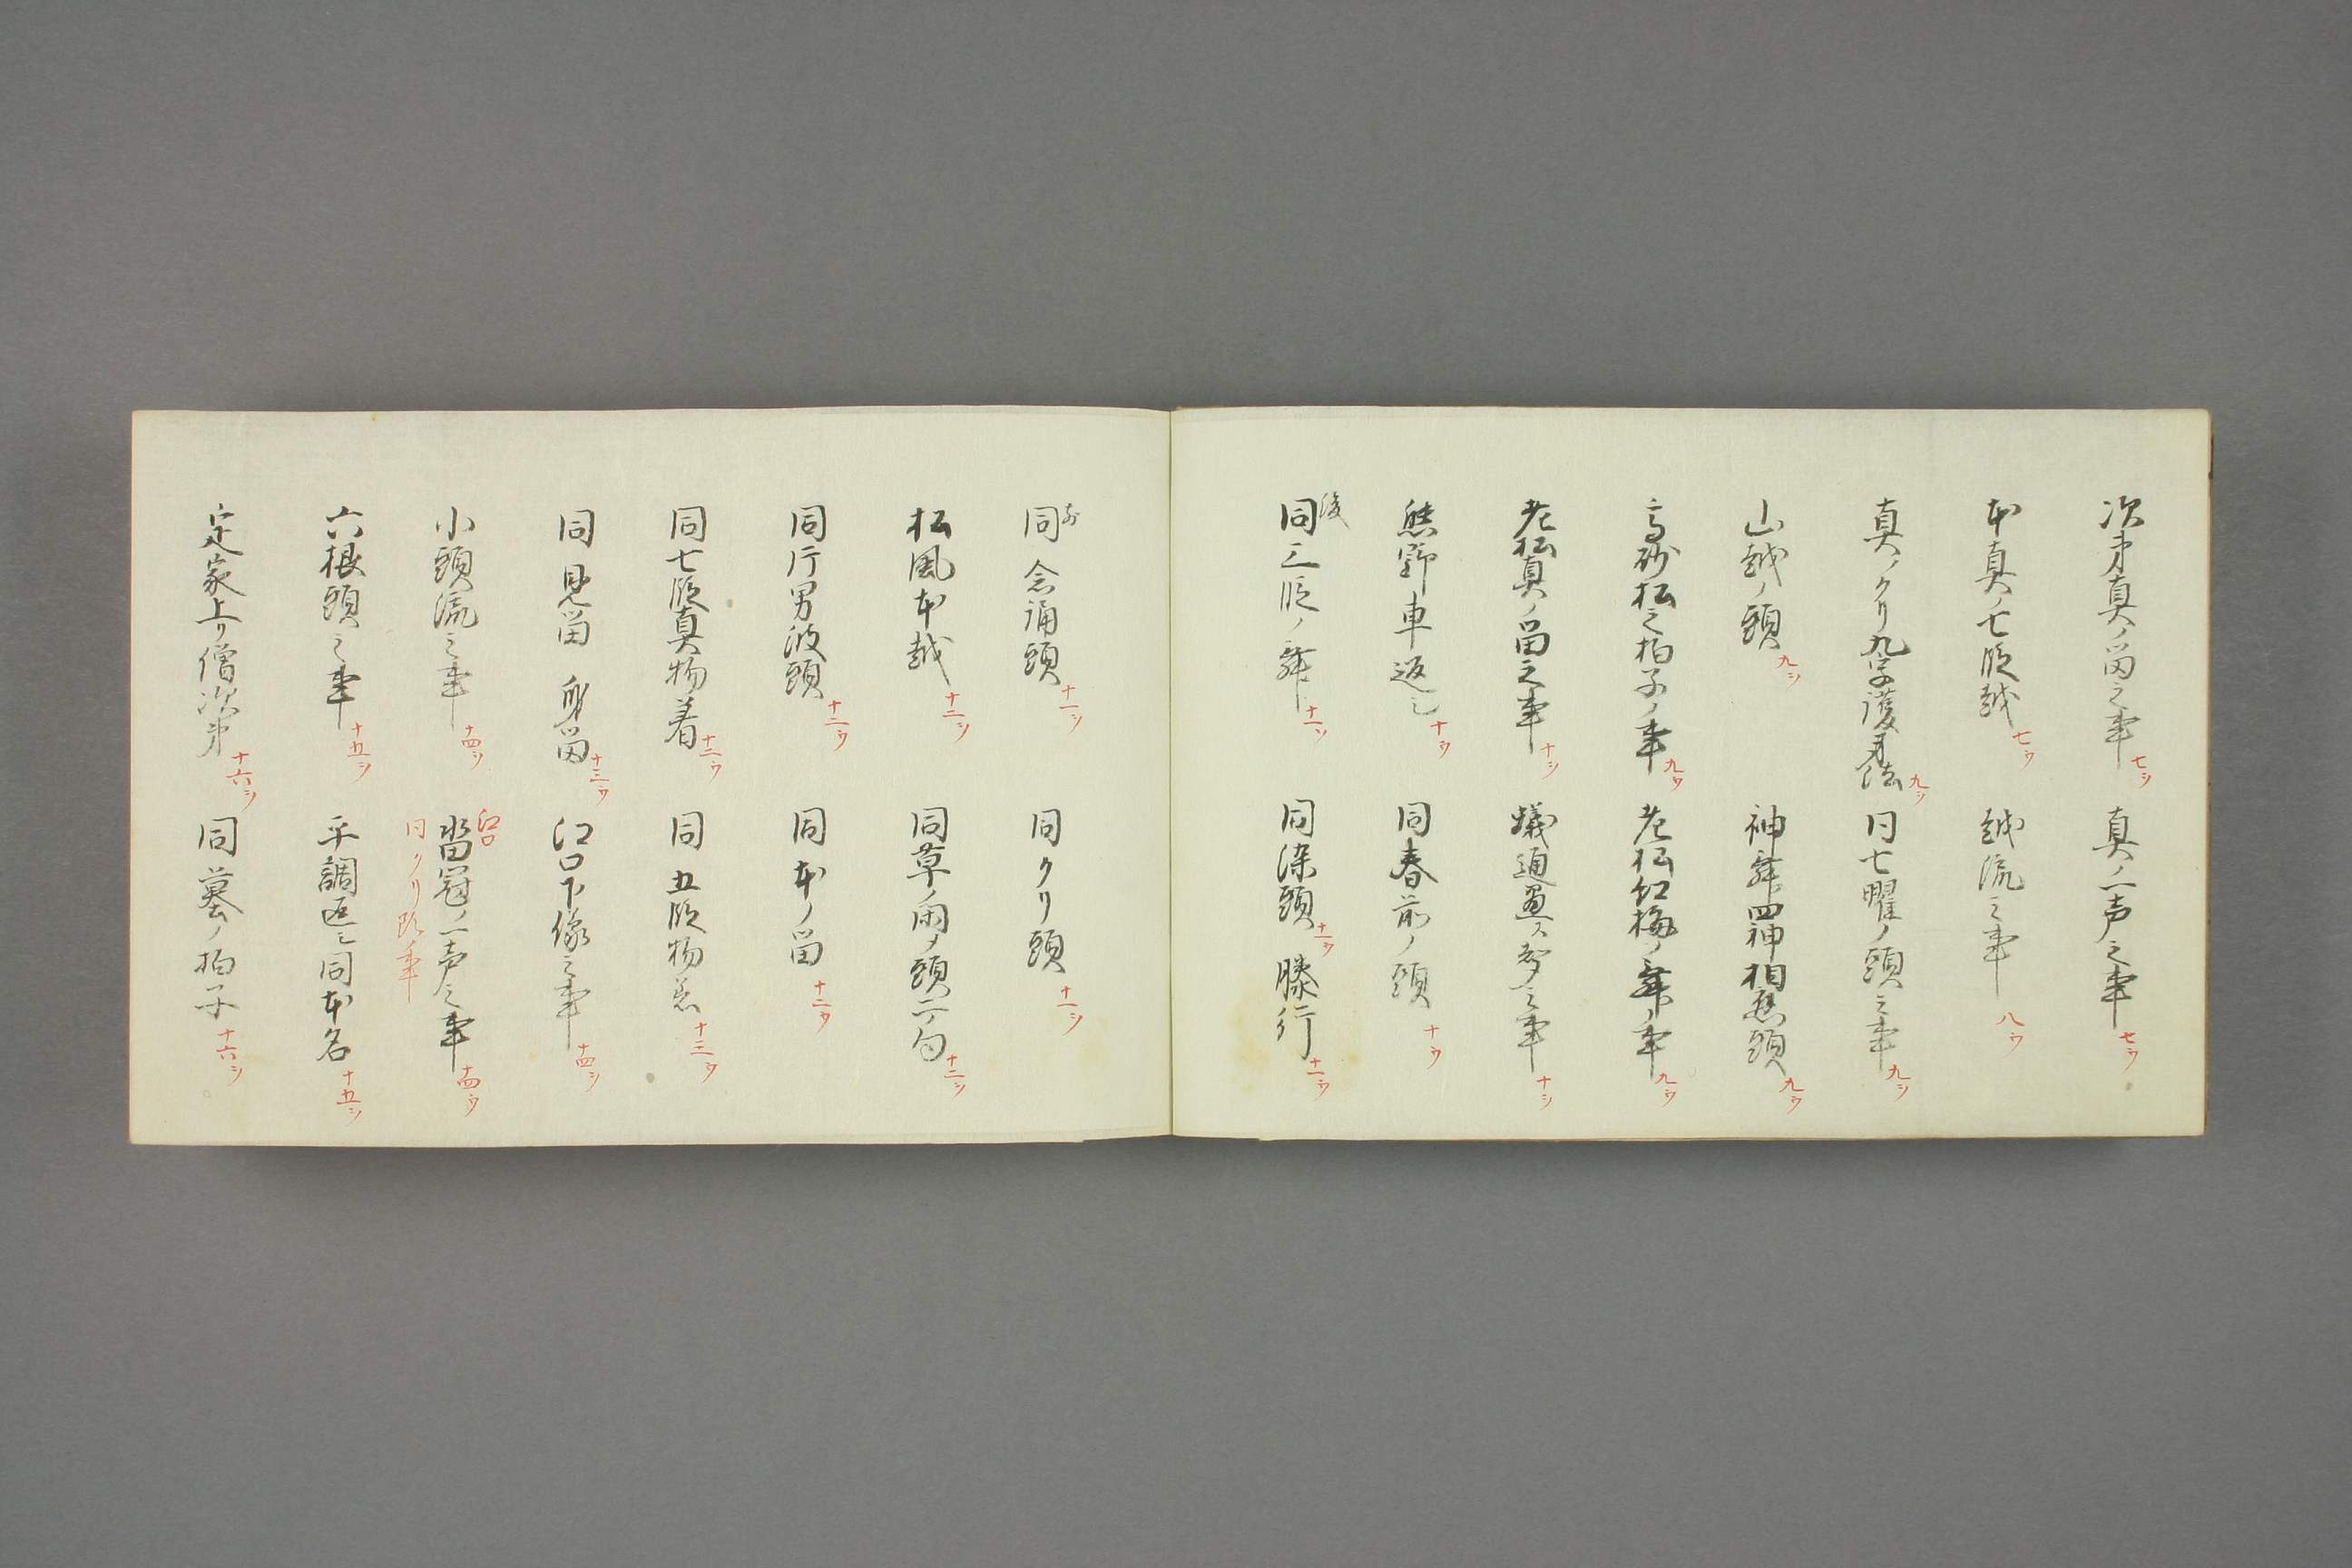 次第真ノ留之事 七シ
真ノ一声之事 七ウ
本真ノ七段越 七ウ
越流之事 八ウ
真ノクリ九字護身法 九シ
同七曜ノ頭之事 九シ
山越ノ頭 九シ
神舞四神相應頭 九ウ
高砂松之拍子ノ事 九ウ
老松紅梅ノ舞ノ事 九ウ
老松真ノ留之事 十シ
蟻通 之事 十シ
熊野車返シ 十ウ
同春前ノ頭 十ウ
後
同三段ノ舞 十一シ
同深頭 十一ウ
膝行 十一ウ
同念誦頭 十一シ
同クリ頭 十一シ
松風本越 十二シ
同草ノ聞ノ頭二ノ句 十二シ
同片男波頭 十二ウ
同本ノ留 十二ウ
同七段真物着 十二ウ
同五段物着 十三ウ
同見留 身留 十三ウ
江口下様之事 十四シ
小頭流之事 十四シ
江口
沓冠ノ一声之事 十四ウ
同クリ 事
六根頭之事 十五シ
平調返シ同本名 十五シ
定家上リ僧次第 十六シ
同墓ノ拍子 十六シ